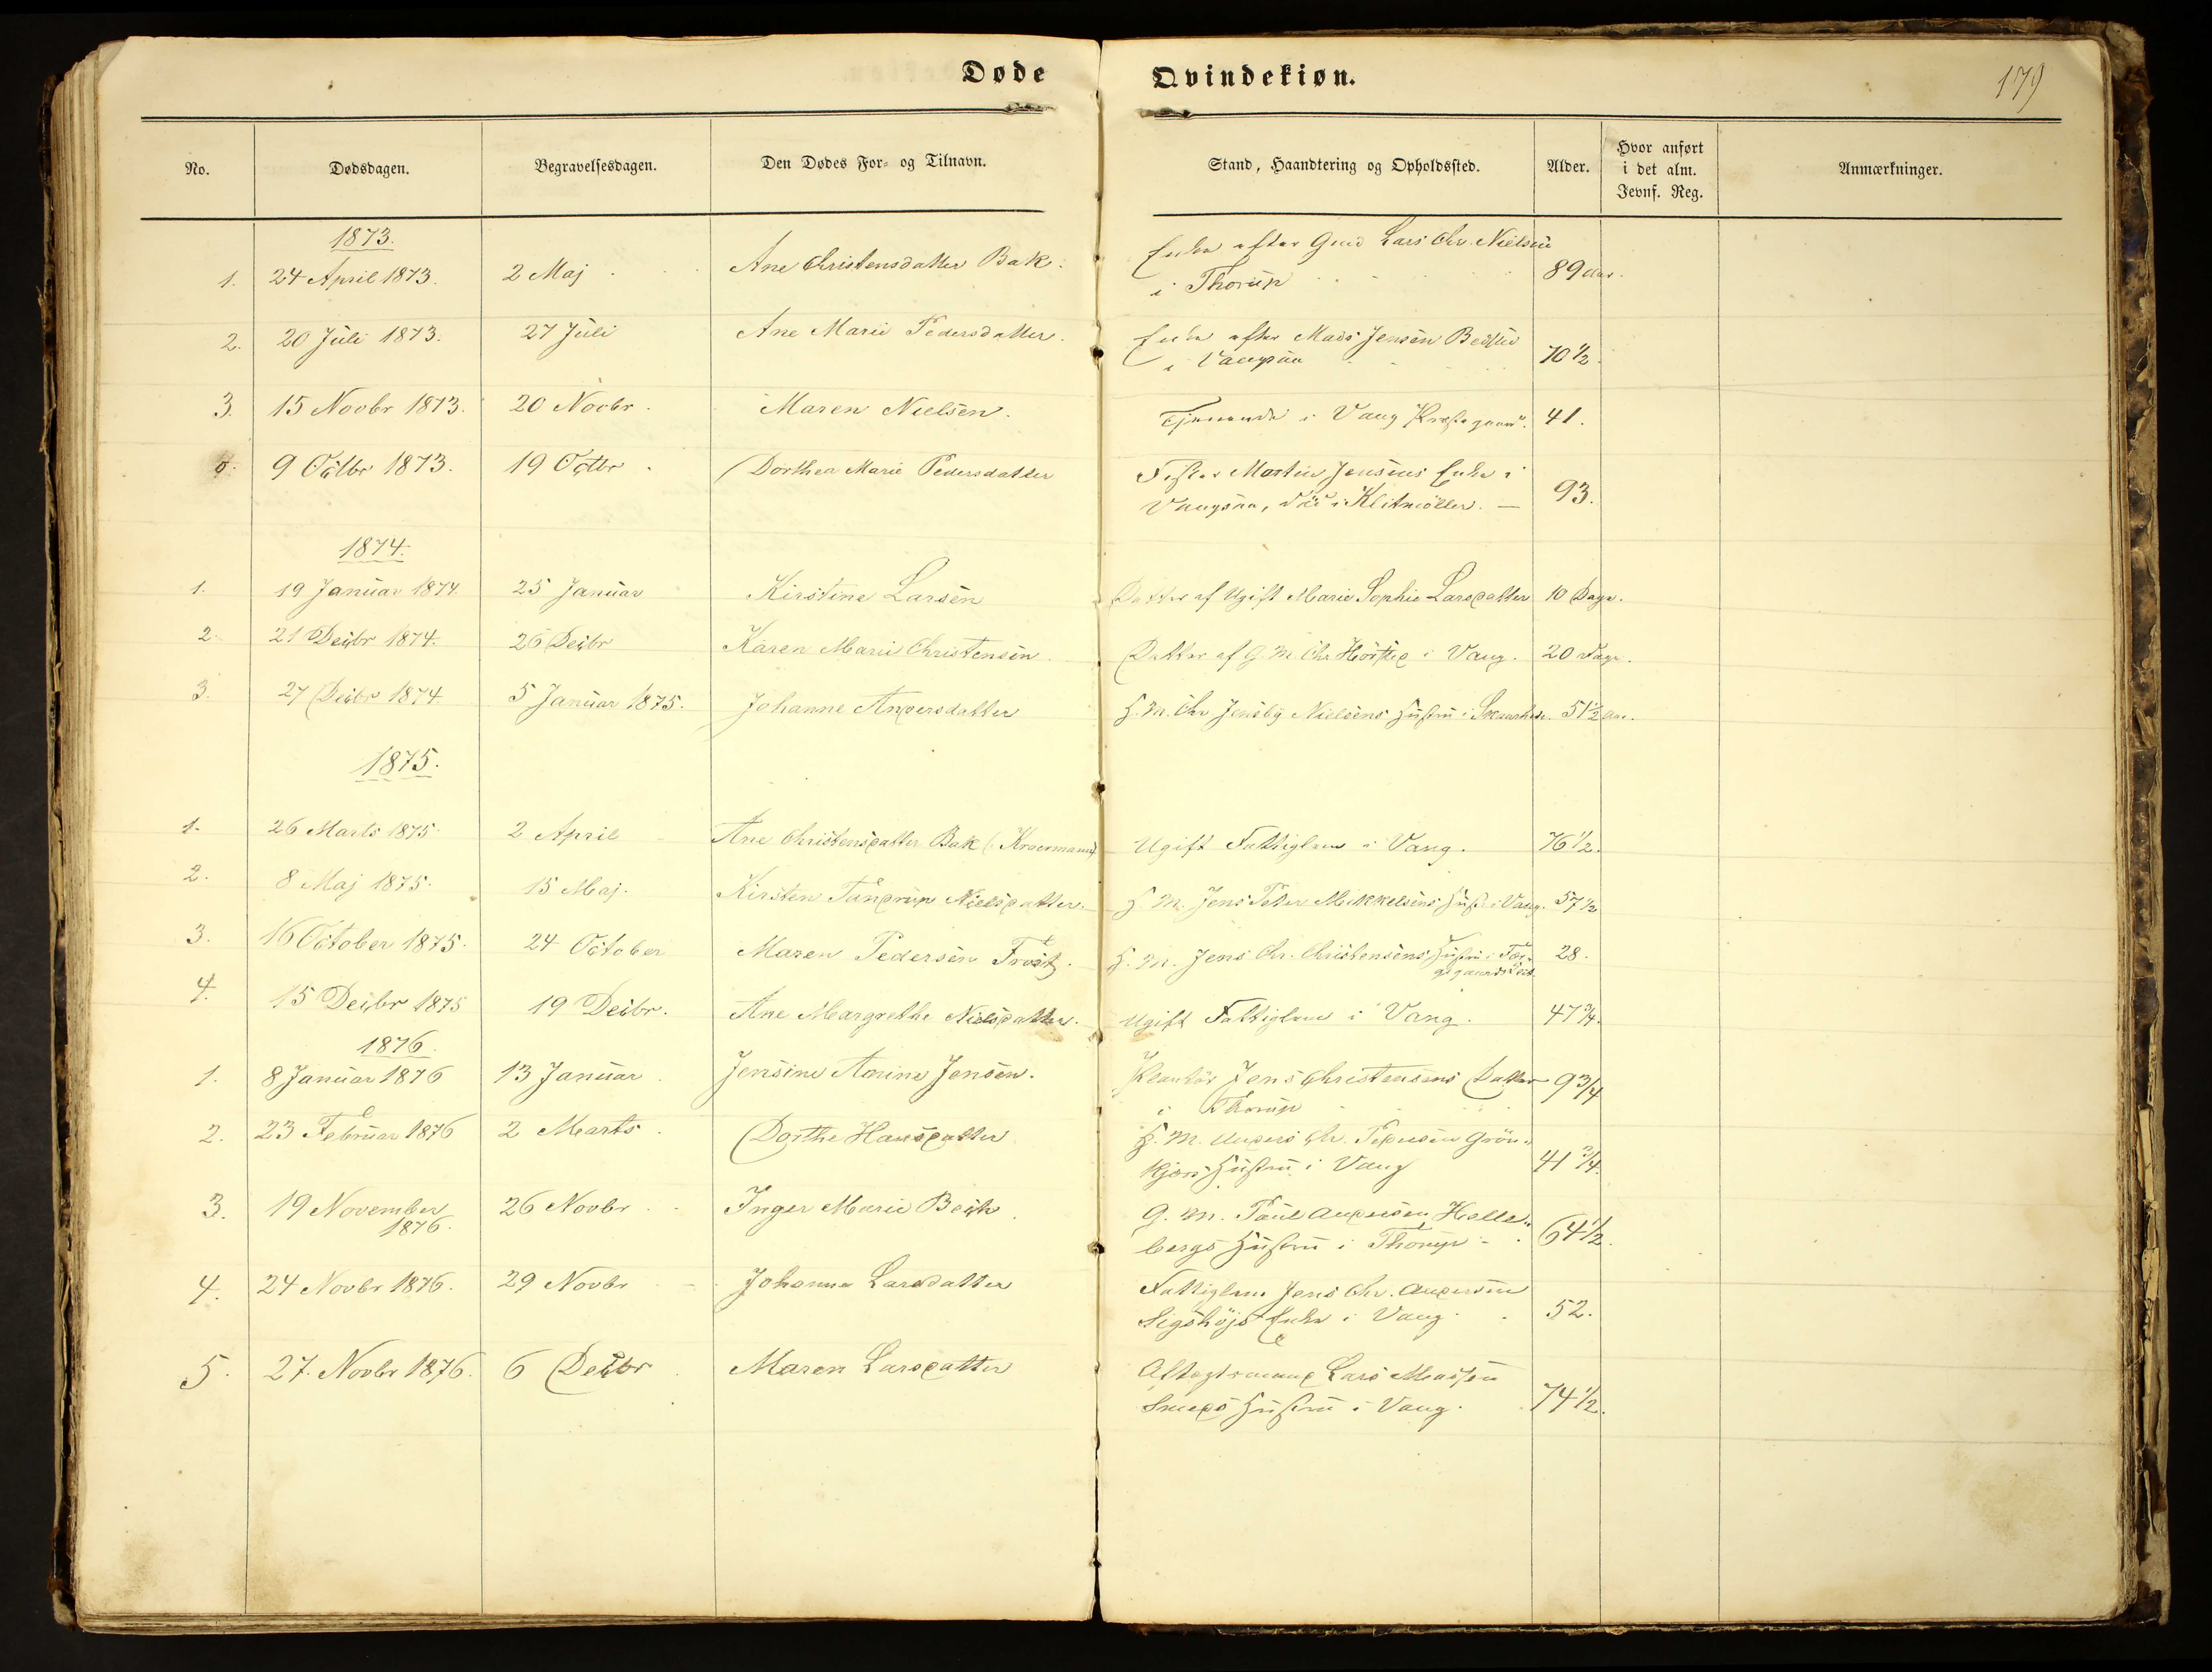 Døde Qvindekiøn.
179
No. Dødsdagen. Begravelsesdagen. Den Dødes For- og Tilnavn. Stand, Haandtering og Opholdssted. Alder. Hvor anført i det alm. Jevnf. Reg. Anmærkninger.
1873.
1. 24 April 1873. 2 Maj Ane Christensdatter Bak. Enke efter Gmd Lars Chr. Nielsen
i Thorup 89 Aar.
2. 20 Juli 1873. 27 Juli Ane Marie Pedersdatter. Enke efter Mads Jensen
i Vangsaa 70 1/2.
3. 15 Novbr 1873. 20 Novbr. Maren Nielsen. Tjenende i Vang Præstegaard. 41.
9 Octbr 1873. 19 Octbr. Dorthea Marie Pedersdatter Fisker Martin Jensens Enke i
Vangsaa, død i Klitmöller. — 93.
1874.
1. 19 Januar 1874. 25 Januar Kirstine Larsen Datter af Ugift Marie Sophie Larsdatter 10 Dage.
2. 21 Decbr 1874. 26 Decbr Karen Marie Christensen. Datter af G. M. Chr. i Vang. 20 Dage.
3. 27 Decbr 1874. 5 Januar 1875. Johanne Andersdatter H. M. Chr Jensby Nielsens Hustru i 51 1/2 Aar.
1875.
1. 26 Marts 1875. 2 April Ane Christensdatter Bak (Kraermand) Ugift Fattiglem i Vang. 76 1/2.
2. 8 Maj 1875. 15 Maj. Kirsten Tandrup Nielsdatter. H. M. Jens Peter Mikkelsens Hust. i Vang. 57 1/2
3. 16 October 1875. 24 October Maren Pedersen Frost. H. M. Jens Chr. Christensens Hustru i 28.
4. 15 Decbr 1875 19 Decbr. Ane Margrethe Nielsdatter. Ugift Fattiglem i Vang. 47 3/4.
1876.
1. 8 Januar 1876 13 Januar. Jensine Amine Jensen. Jens Christensens Datter
i Thorup 9 3/4
2. 23 Februar 1876 2 Marts. Dorthe Hansdatter H. M. Anders Chr. Pedersen Grön-
kjærs Hustru i Vang 41 3/4.
3. 19 November
1876. 26 Novbr. Inger Marie Bech. G. M. Poul Andersen Helle-
bergs Hustru i Thorup 64 1/2.
4. 24 Novbr 1876. 29 Novbr Johanne Larsdatter Fattiglem Jens Chr. Andersen
Sigshöjs Enke i Vang. 52.
5. 27. Novbr 1876. 6 Decbr Maren Larsdatter Aftægtsmand Lars Madsen
Smeds Hustru i Vang. 74 1/2.